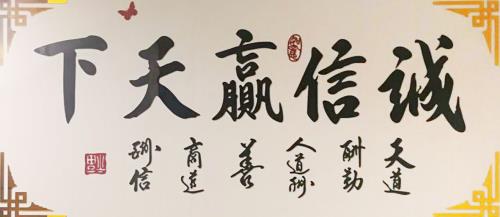 誠信贏天下
天道
酬勤
人道酬
善
商道
酬信